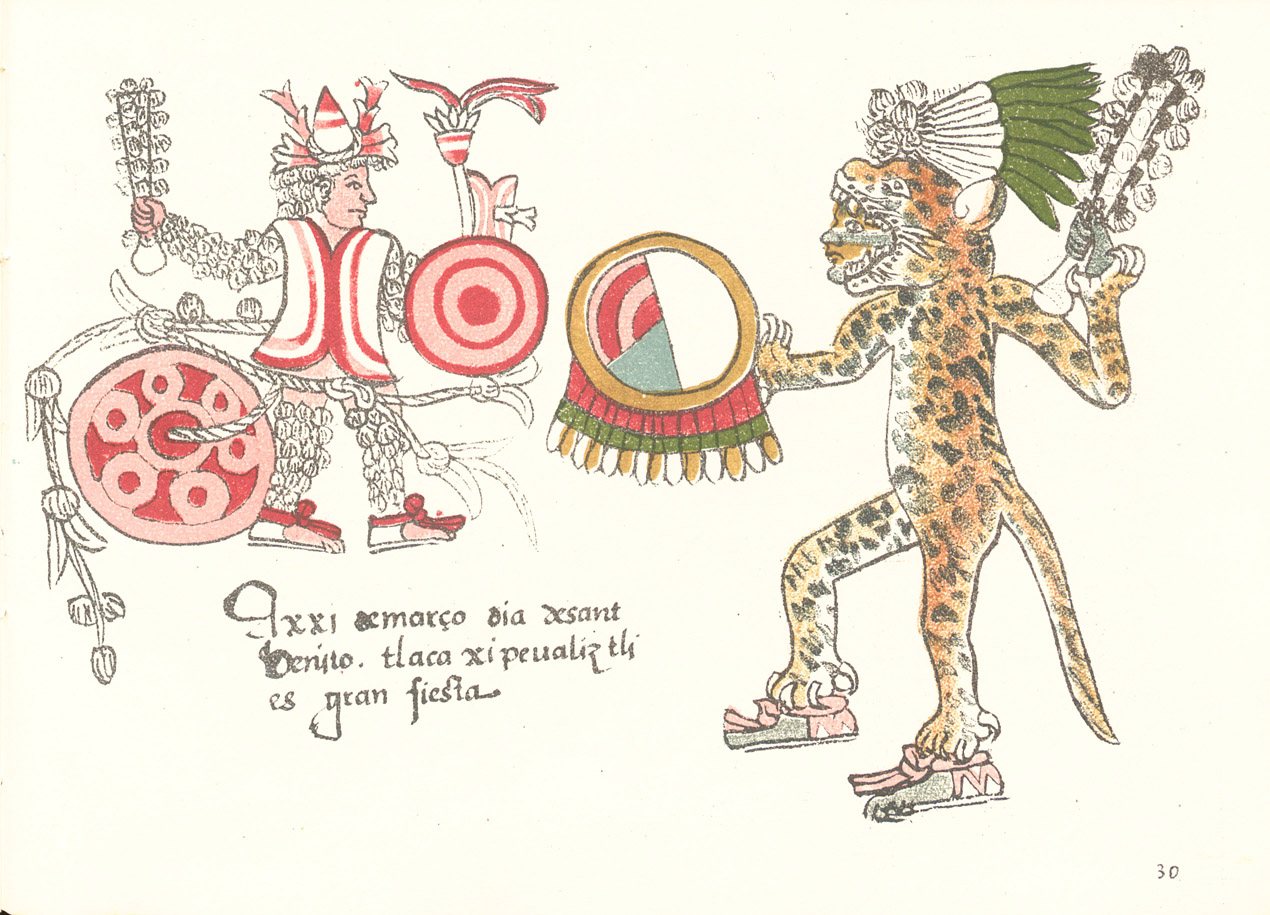 xxi de março dia de sant
benito. tlaca xipeualiztli
es gran fiesta
30